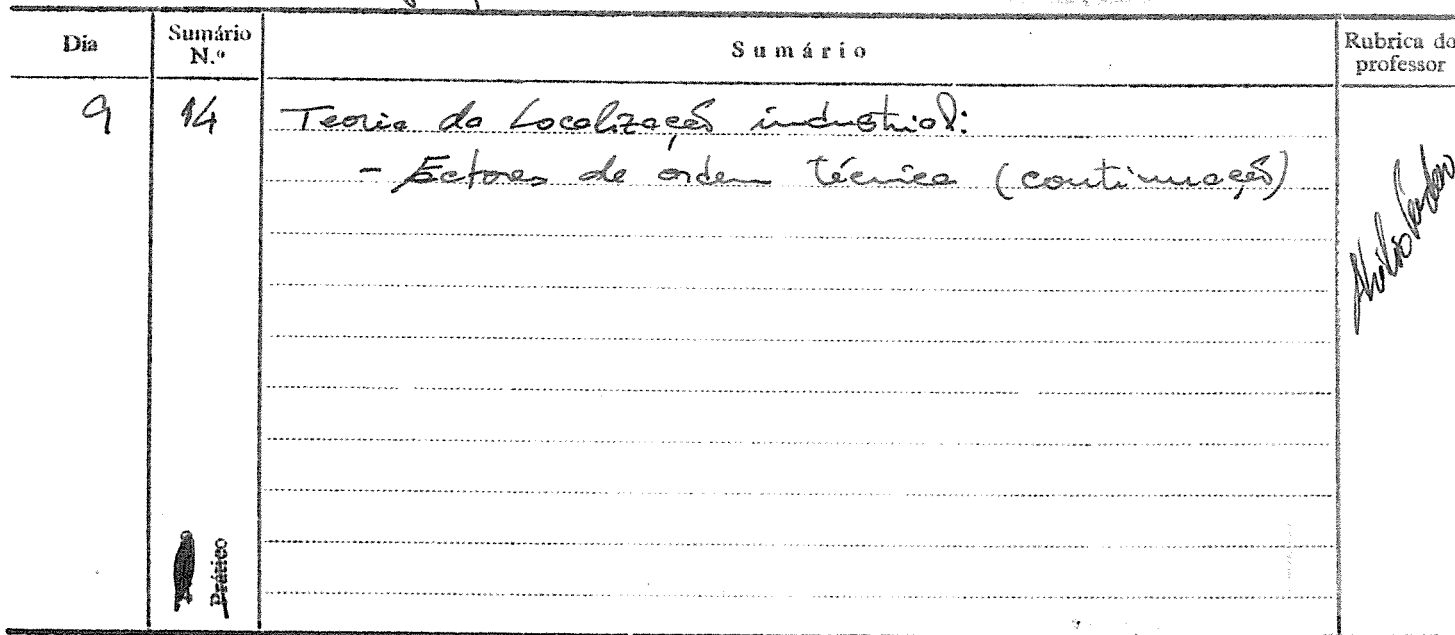 Dia
Sumário N.º
Sumário
Rubrica do professor
9
14
Teoria da Localização industrial:
- Factores de ordem técnica (continuação)
Prático